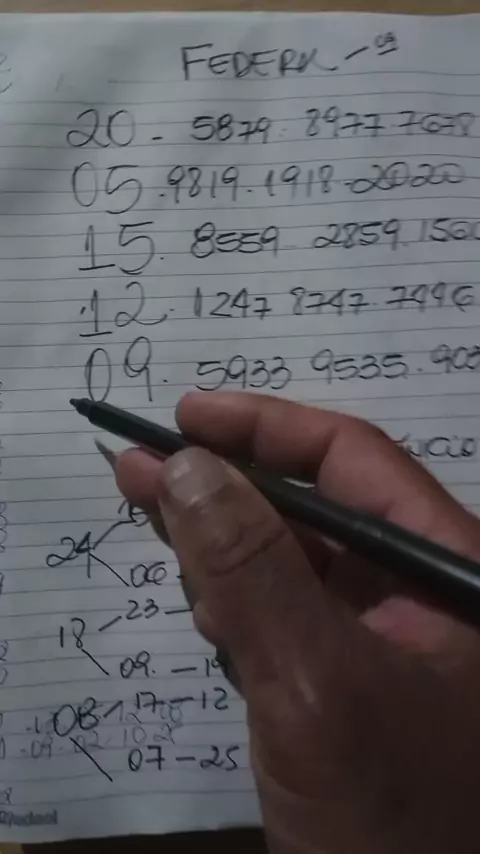 FEDERAL - 03
20 - 5879. 8977. 7678
05. 9819. 1918. 2020
15. 8559 2859. 156
12. 1247 8747. 7496
09. 5933 9535. 903
24
06 -
18 - 23 -
09. - 19
08 17 - 12
07 - 25